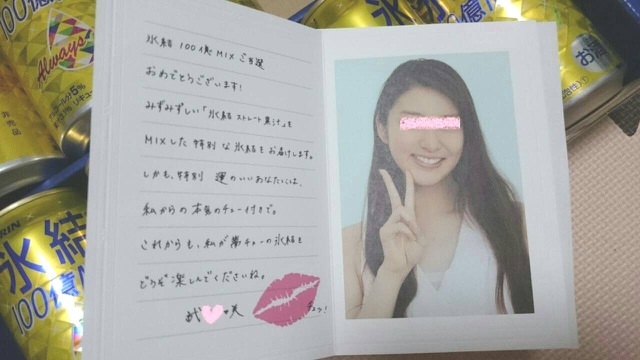 氷結 100億MIX ご当選
おめでとうございます!
みずみずしい「氷結ストレート果汁」を
MIXした特別な氷結をお届けします。
しかも、特別 運のいいあなたには、
私からの本気のチュー付きで。
これからも、私が夢チューの氷結を
どうぞ楽しんでくださいね。
咲
チュッ!
Always
アルコール5%
非売品
KIRIN
氷結
100億
お酒